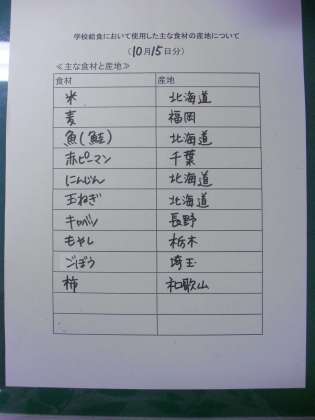 学校給食において使用した主な食材の産地について
（10月15日分）
≪主な食材と産地≫
食材 産地
米 北海道
麦 福岡
魚(鮭) 北海道
赤ピーマン 千葉
にんじん 北海道
玉ねぎ 北海道
キャベツ 長野
もやし 栃木
ごぼう 埼玉
柿 和歌山